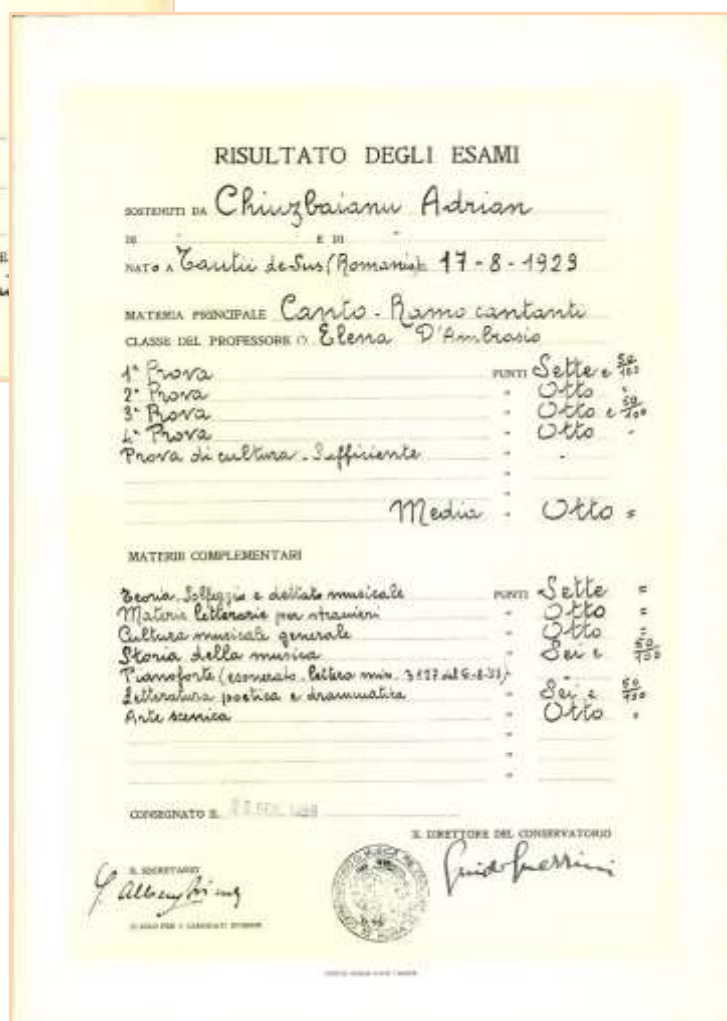 RISULTATO DEGLI ESAMI
SOSTENUTI DA Chiuzbaianu Adrian
DI " E DI "
NATO A Tautii de Sus (Romania) 17-8-1923
MATERIA PRINCIPALE Canto - Ramo cantanti
CLASSE DEL PROFESSORE Elena D'Ambrosio
1ª Prova PUNTI Sette e 50/100
2ª Prova " Otto "
3ª Prova " Otto e 50/100
4ª Prova " Otto "
Prova di cultura - Sufficiente " "
Media " Otto =
MATERIE COMPLEMENTARI
Teoria, Solfeggio e dettato musicale PUNTI Sette =
Materie letterarie per stranieri " Otto =
Cultura musicale generale " Otto =
Storia della musica " Sei e 50/100
Pianoforte (esonerato lettera min.
Letteratura poetica e drammatica " Sei e 50/100
Arte scenica " Otto "
CONSEGNATO IL
IL DIRETTORE DEL CONSERVATORIO
Guido Guerrini
IL SEGRETARIO